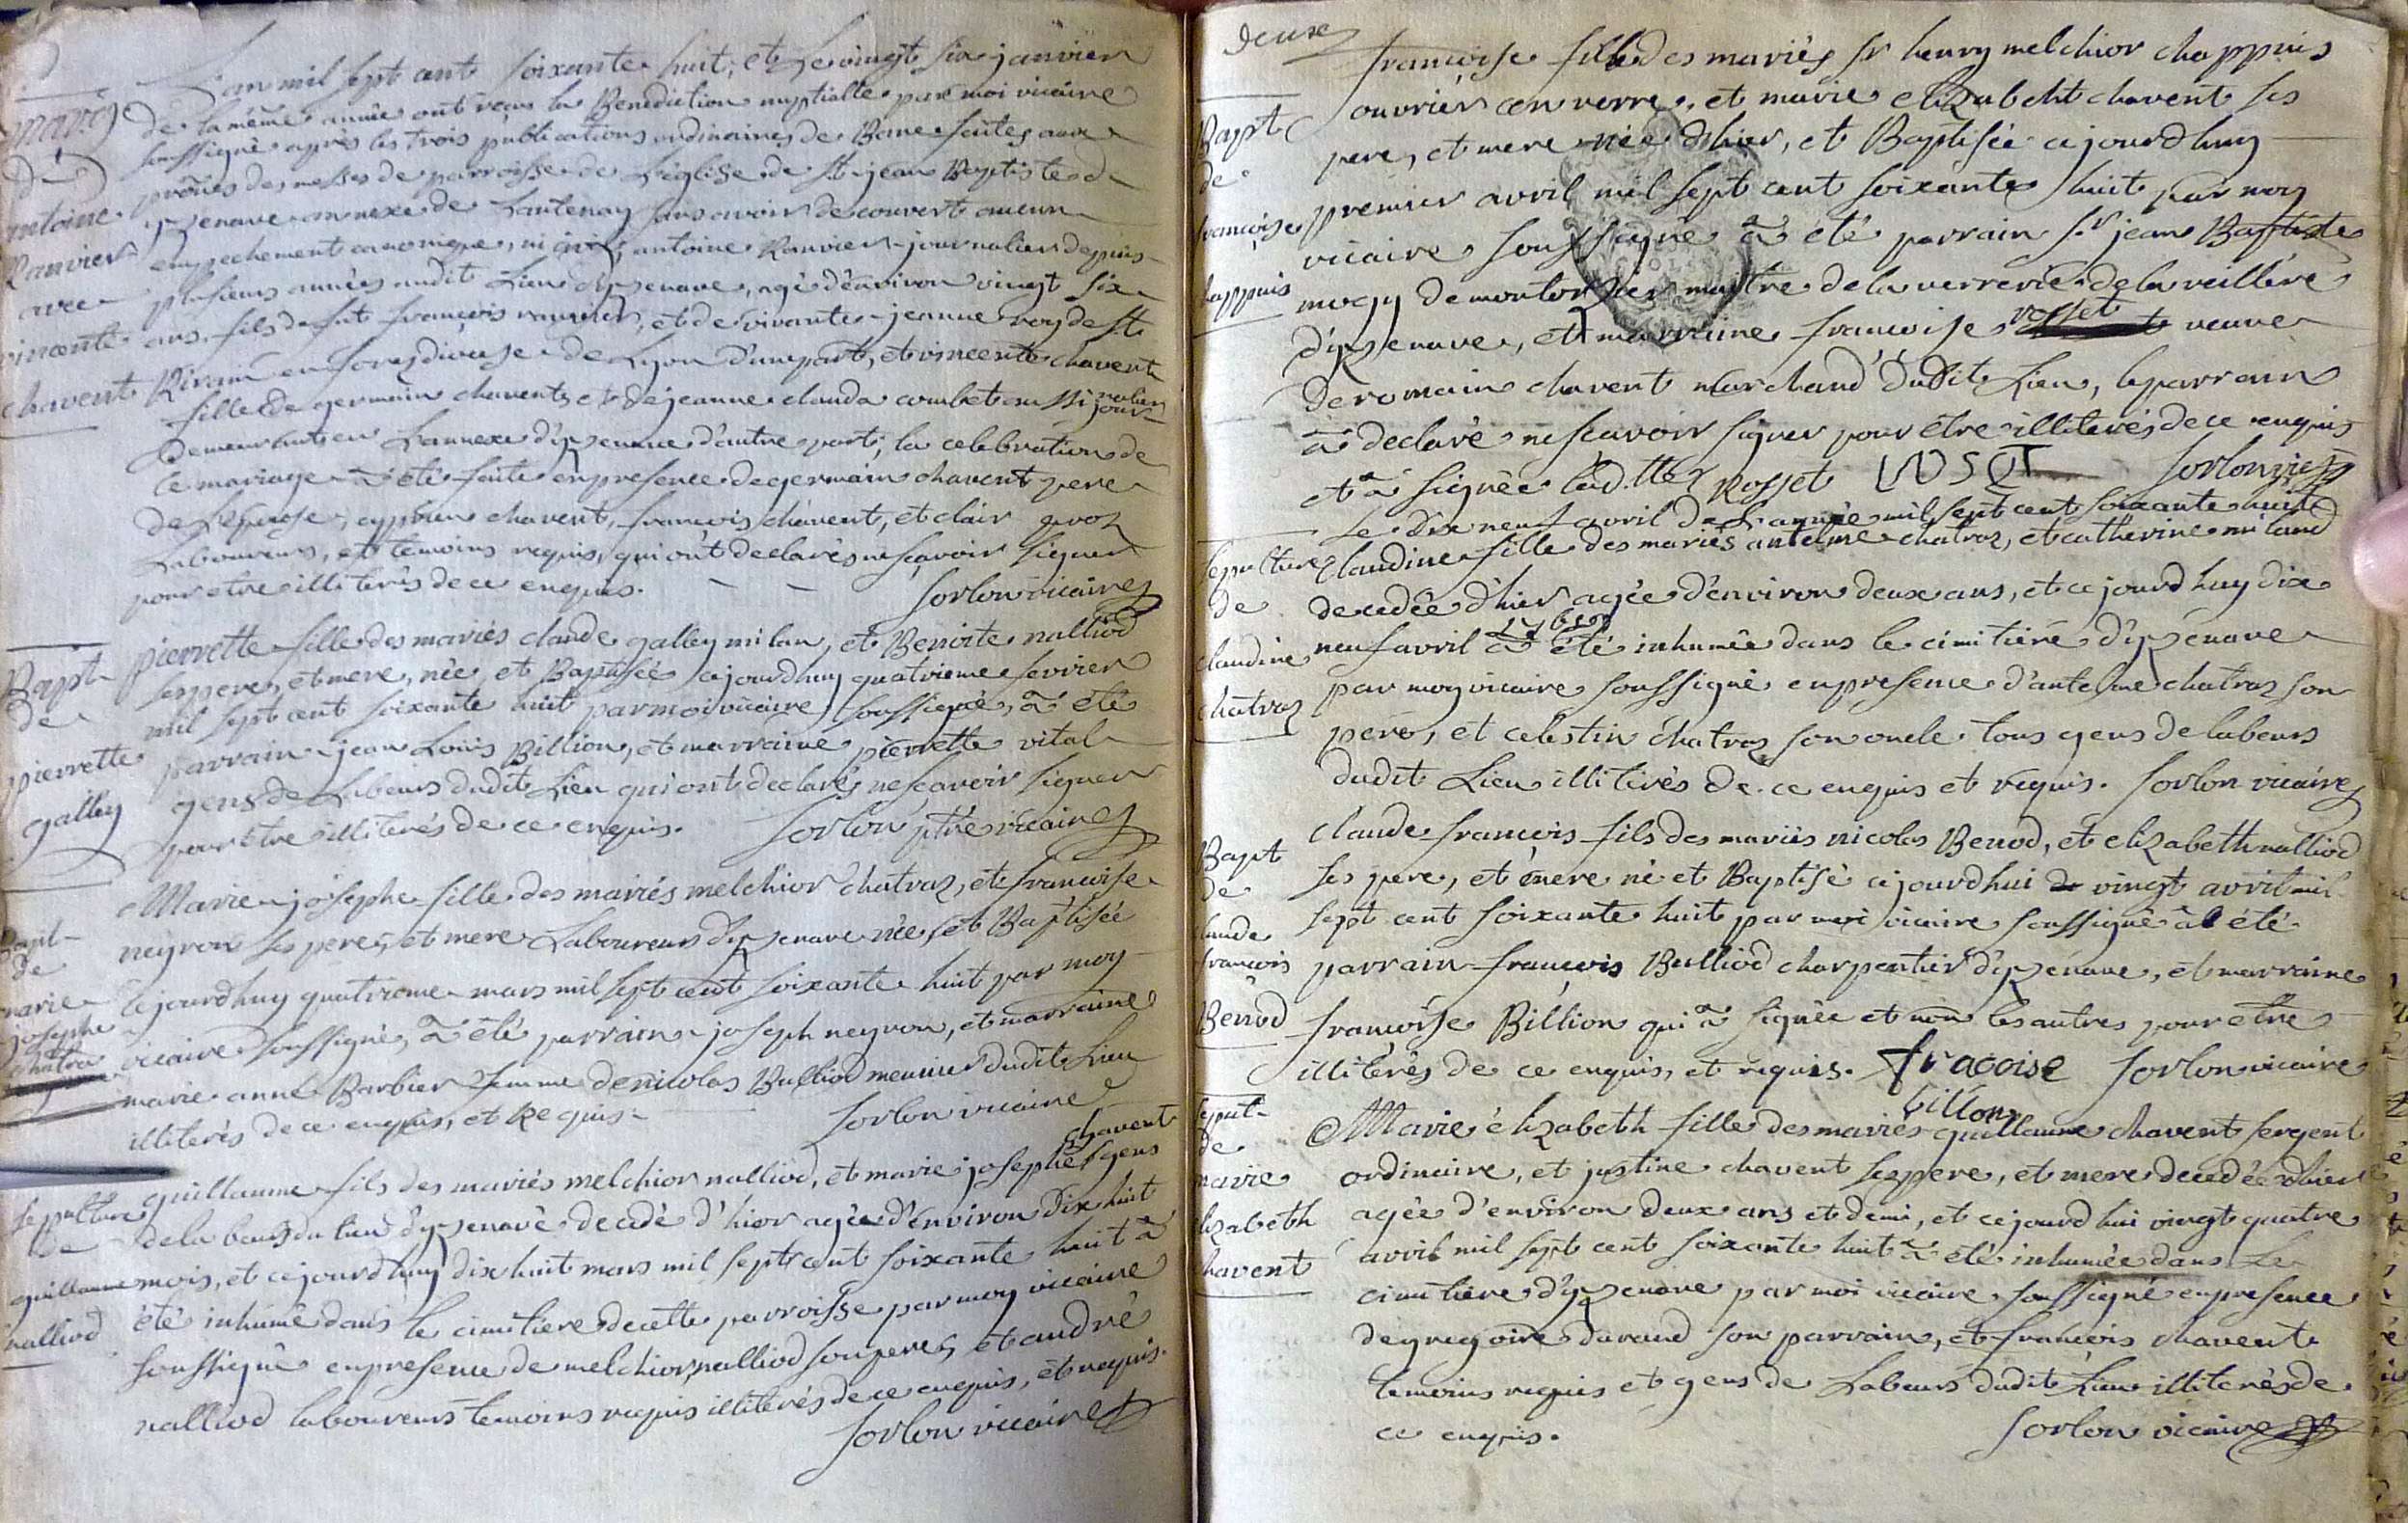 Mar.e
de
antoine
Ranvier
avec
vincente
chavent
L'an mil sept cent soixante huit, et le vingt six janvier
de la même année ont reçus la Benediction nuptialle par moi vicaire
soussigné après les trois publications ordinaires de Bane faites aux
prônes des messes de parroisse de L'église de st jean Baptiste d
izenave annexe de Lantenay sans avoir decouvert aucun
empechement canonique, ni civil, antoine Ranvier journalier depuis
plusieurs années audit Lieu d'yzenave, agé d'environ vingt six
ans, fils de fut françois ranvier, et de vivante jeanne roy de st
Rirand en forez diocese de Lyon d'une part, et vincente chavent
fille de germain chavent, et de jeanne clauda combet aussi journalier
demeurant en L'annexe d'yzenave d'autre part, la celebration de
ce mariage a été faite en presence de germain chavent pere
de L'epouse, cyprien chavent, françois chavent, et clair proz
Laboureurs, et temoins requis, qui ont declarés ne sçavoir signer
pour etre illiterés de ce enquis. sorlon vicaire
Bapt
de
pierrette
galley
pierrette fille des mariés claude galley milan, et Benoite nalliod
ses pere, et mere, née, et Baptisée cejourdhuy quatrieme fevrier
mil sept cent soixante huit par moi vicaire soussigné, a été
parrain jean Louis Billion, et marraine pierrette vital
gens de Labeurs dudit Lieu qui ont declarés ne sçavoir signer
pour être illiterés de ce enquis. sorlon ptre vicaire
Bapt
de
marie
josephe
chatra
Marie josephe fille des mariés melchior chatraz, et françoise
neyron ses pere, et mere Laboureurs d'yzenave née, et Baptisée
cejourdhuy quatrieme mars mil sept cent soixante huit par moy
vicaire soussigné, a été parrain joseph neyron, et marraine
marie anne Barbier femme de nicolas Bulliod meunier dudit Lieu
illiterés de ce enquis, et Requis. sorlon vicaire
sepulture
de
guillaume
nalliod
guillaume fils des mariés melchior nalliod, et marie josephe chavent gens
de labeurs du lieu d'yzenave decedé d'hier agée d'environ dix huit
mois, et cejourdhuy dix huit mars mil sept cent soixante huit a
été inhumé dans le cimitiere de cette parroisse par moy vicaire
soussigné en presence de melchior nalliod son pere, et andré
nalliod laboureurs temoins requis illiterés de ce enquis, et requis.
sorlon vicaire
deux
Bapt
de
françoise
chappuis
françoise fille des mariés sr henry melchior chappuis
ouvrier en verre, et marie elizabeht chavent ses
pere, et mere née d'hier, et Baptisée cejourdhuy
premier avril mil sept cent soixante huit par moy
vicaire soussigné a été parrain sr jean Baptiste
de montorsier maitre de la verrerie de la veillere
d'yzenave, et marraine françoise rosset veuve
de romain chavent marchand dudit Lieu, le parrain
a declaré ne sçavoir signer pour être illiterés de ce enquis
et a signée lad.tte Rosset sorlon vic
Le dix neuf avril de L'année mil sept cent soixante huit
sepulture
de
claudine
chatraz
claudine fille des mariés antelme chatraz, et catherine miland
decedée d'hier agée d'environ deux ans, et cejourdhuy dix
neuf avril 1768 a été inhumée dans le cimitiere d'yzenave
par moy vicaire soussigné en presence d'antelme chatraz son
pere, et celestin chatraz son oncle tous gens de labeurs
dudit Lieu illiterés de ce enquis et requis. sorlon vicaire
Bapt
de
claude
françois
Benod
claude françois fils des mariés nicolas Benod, et elizabeth nalliod
ses pere, et mere né et Baptisé cejourdhui vingt avril mil
sept cent soixante huit par moi vicaire soussigné a été
parrain françois Bulliod charpentier d'yzenave, et marraine
françoise Billion qui a signée et non les autres pour être
illiterés de ce enquis, et requis. fracoise billon sorlon vicaire
sepul
de
marie
elizabeth
chavent
Marie élizabeth fille des mariés guillaume chavent sergent
ordinaire, et justine chavent ses pere, et mere decedée d'hier
agée d'environ deux ans et demi, et cejourdhui vingt quatre
avril mil sept cent soixante huit a été inhumée dans le
cimitiere d'yzenave par moi vicaire soussigné en presence
de gregoire durand son parrain, et françois chavent
temoins requis et gens de Labeurs dudit Lieu illiterés de
ce enquis. sorlon vicaire